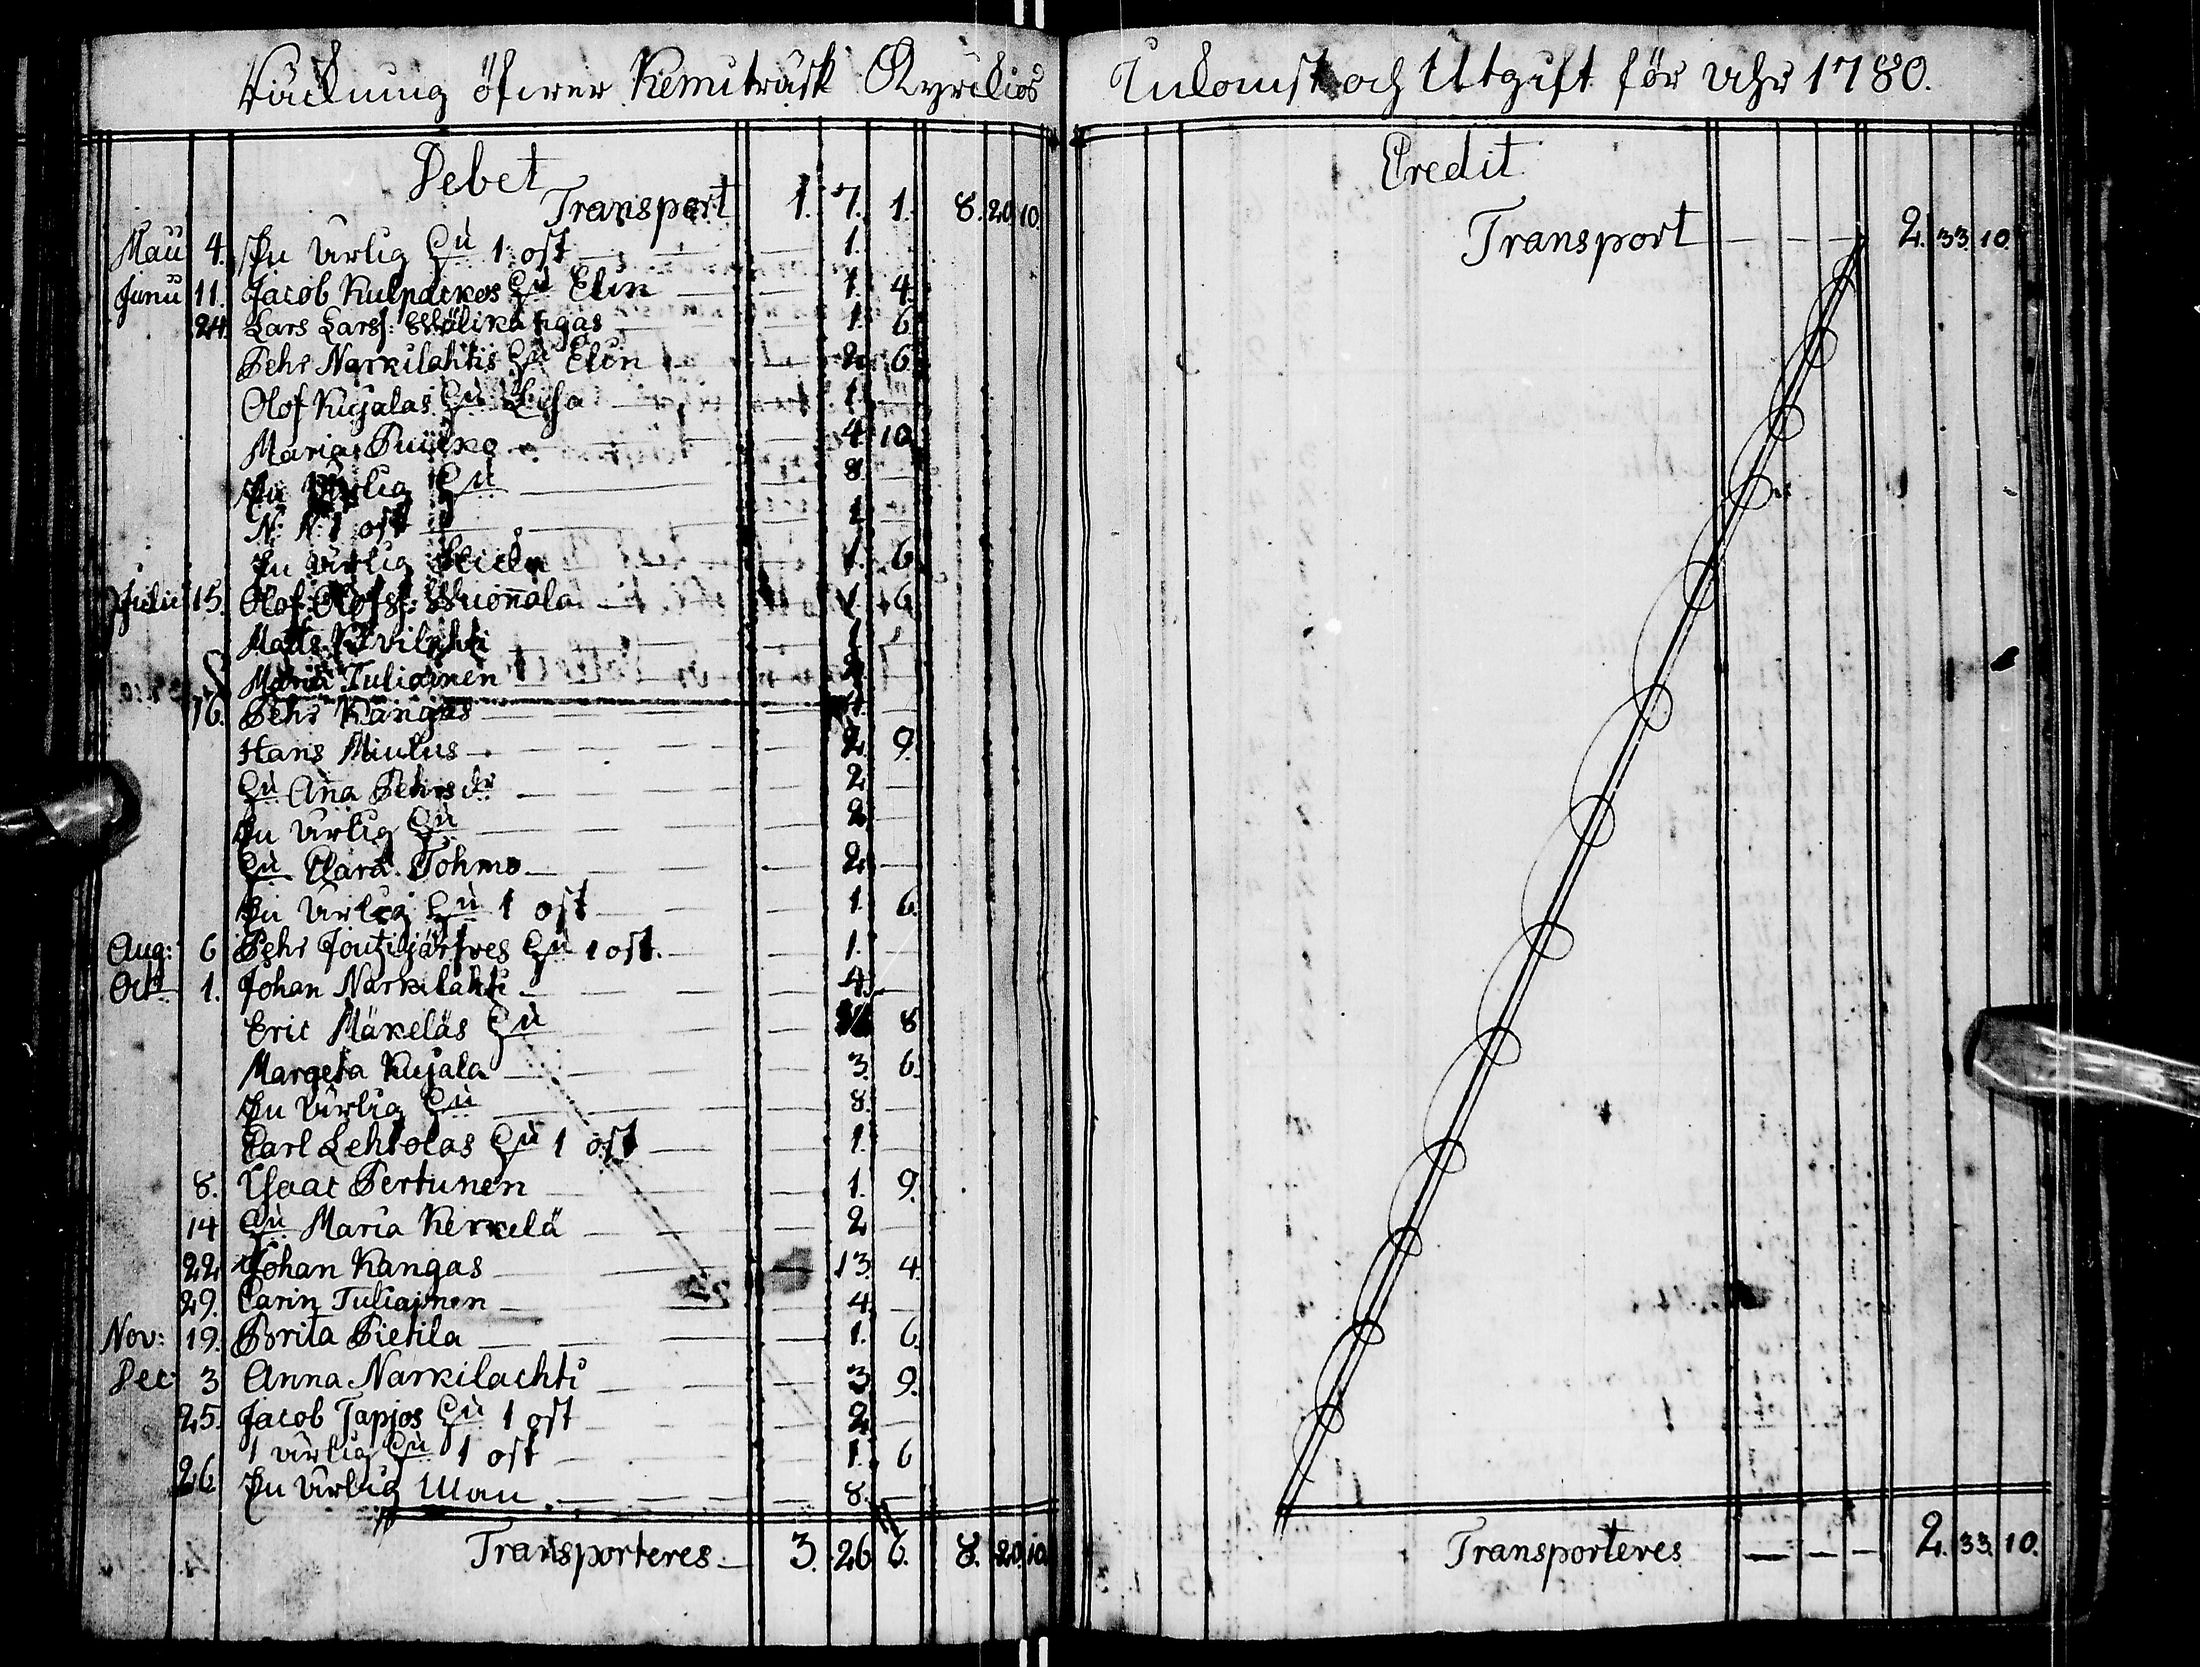 Räckning öfwer Kemiträsk Kyrckios Inkomst och Utgift för åhr 1780.
Debet
Transport 1. 7. 1. 8. 20. 10.
Maii 4. En ärlig Hu 1 ost — 1.
Junii 11. Jacob Kulpackos Hu Elin — 1. 4.
24. Lars Larss: Wälikangas — 1. 6.
Pehr Narkilahtis Hu Elin — 2. 6.
Olof Kujalas Hu Lisa — 1. —
Maria Puikko — 4. 10.
En ärlig Hu — 8. —
N: N: 1 ost — 1. —
En ärlig — 1. 6.
Julii 15. Olof Olofss: Wuoñala — 1. 6.
Matts — 1.
Maria Tuliainen — 2.
16. Pehr Kangas — 1. —
Hans Miulus — 2. 9.
Hu Aña Pehrs dr — 2. —
En ärlig Hu — 2. —
Hu Clara Tohmo — 2. —
En ärlig Hu 1 ost — 1. 6.
Aug: 6 Pehr Joutzijärfwes Hu 1 ost. — 1. —
Octb 1. Johan Narkilahti — 4. —
Eric Mäkeläs Hu — 8
Margeta Kujala — 3. 6.
En ärlig Hu — 8. —
Carl Lehtolas Hu 1 ost — 1. —
8. Isaac Pertunen — 1. 9.
14 Hu Maria Kerkelä — 2 —
22 Johan Kangas — 13. 4.
29. Carin Tuliainen — 4. —
Nov: 19. Brita Pietila — 1. 6.
Dec 3 Anna Narkilachti — 3 9.
25. Jacob Tapios Hu 1 ost — 2 —
1 ärlig Hu 1 ost — 1. 6
26 En ärlig Man. — 8. —
Transporteres — 3. 26 6. 8. 20. 10.
Credit
Transport — — — 2. 33. 10.
Transporteres — — — 2. 33. 10.